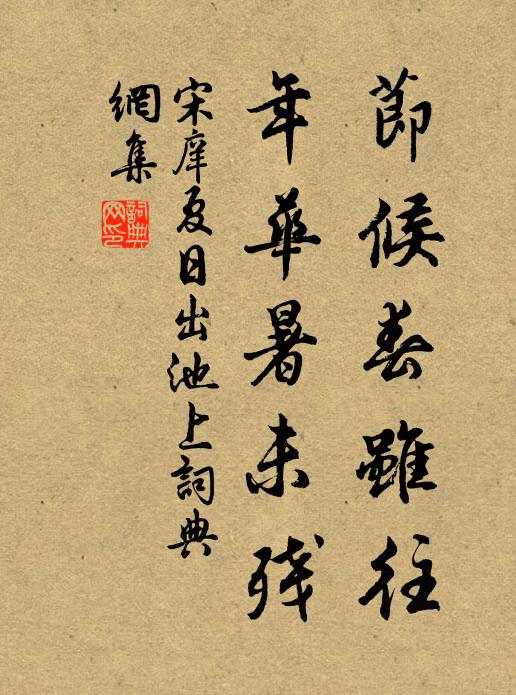 節候春雖往
年華暑未残
宋庠夏日出池上詞典
網集
詞典
网印